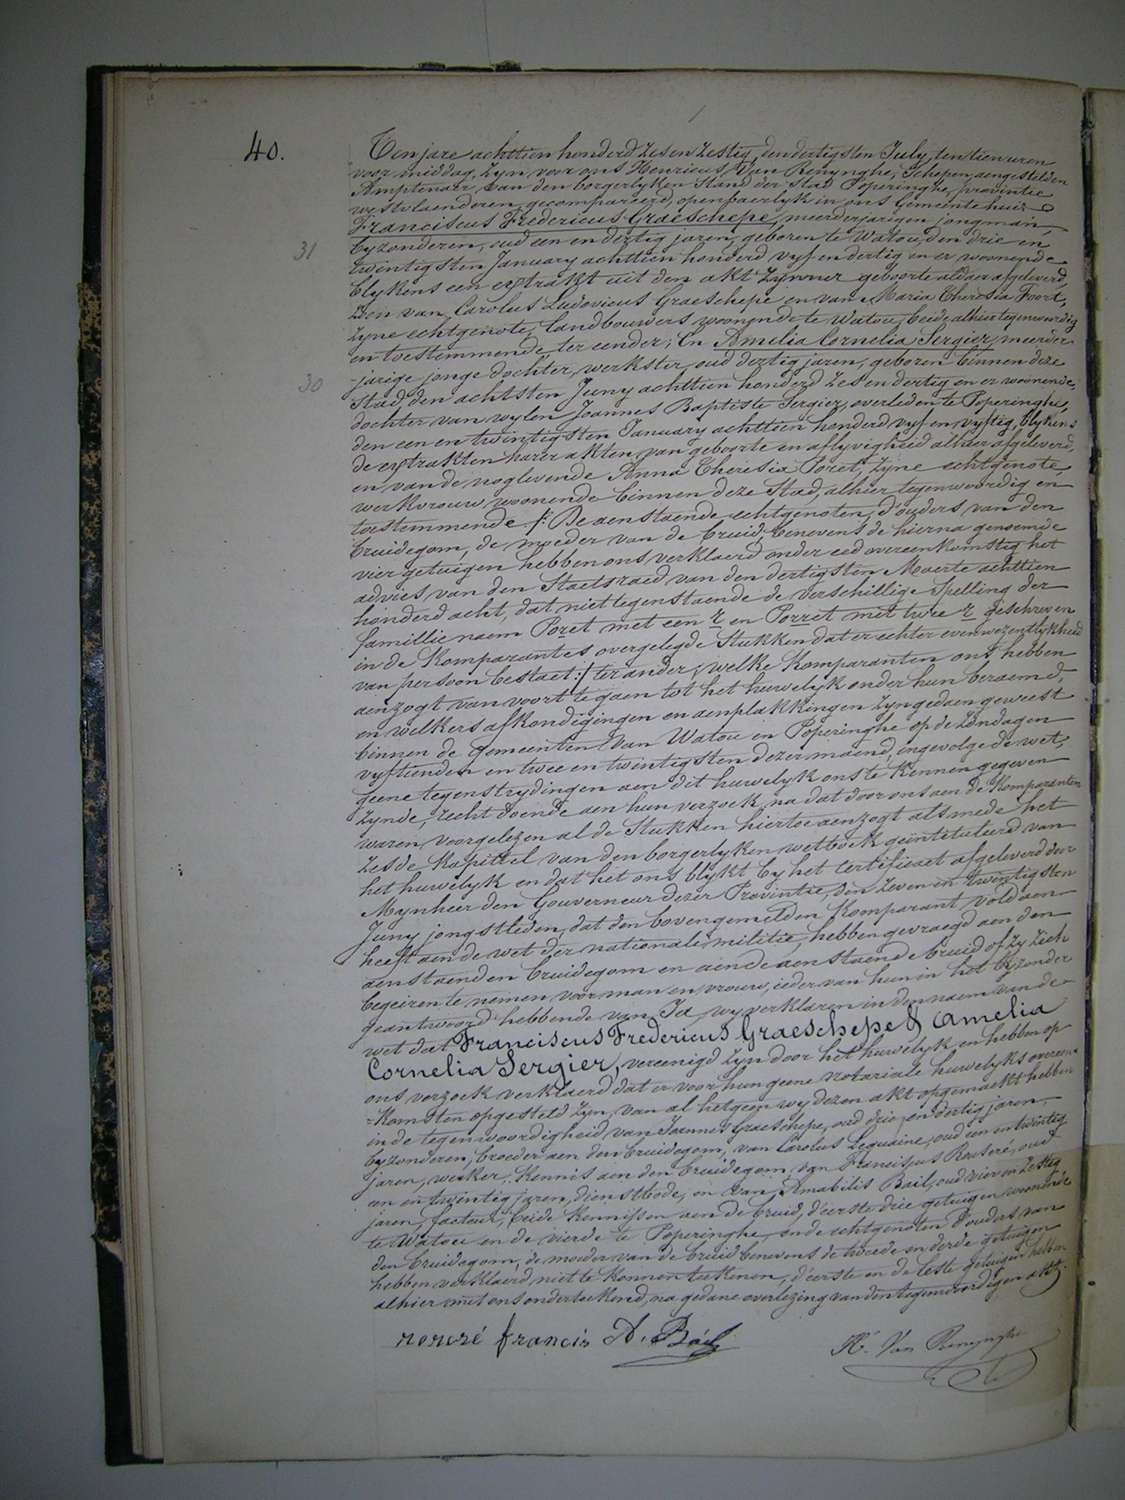 40.
Ten jare achttien honderd zes en zestig, den dertigsten July, ten tien uren
voor middag, zyn voor ons Henricus Van Renynghe, Schepen, aengestelden
Amptenaer van den borgerlyken Stand der Stad Poperinghe, provintie
westvlaenderen, gecompareerd, openbaerlyk in ons Gemeentehuis
Franciscus Fredericus Graeschepe, meerderjarigen jongman,
31
byzonderen, oud een en dertig jaren, geboren te Watou, den drie en
twintigsten January achttien honderd vyf en dertig en er woonende
blykens een extrakt uit den akt zynner geboorte aldaer afgeleverd,
zoon van Carolus Ludovicus Graeschepe en van Maria Theresia Foort,
zyne echtgenote, landbouwers woonende te Watou, beide alhier tegenwoordig
en toestemmende, ter eender; En Amelia Cornelia Sergier, meerder-
30
jarige jonge dochter, werkster, oud dertig jaren, geboren binnen deze
Stad den achtsten Juny achttien honderd zes en dertig en er woonende,
dochter van wylen Joannes Baptiste Sergier, overleden te Poperinghe,
den een en twintigsten January achttien honderd vyf en vyftig, blykens
de extrakten harer akten van geboorte en aflyvigheid alhier afgeleverd,
en van de noglevende Anna Theresia Poret, zyne echtgenote
werkvrouw woonende binnen deze Stad, alhier tegenwoordig en
toestemmende /: De aenstaende echtgenoten, d'ouders van den
bruidegom, de moeder van de bruid, benevens de hierna genoemde
vier getuigen hebben ons verklaerd onder eed overeenkomstig het
advies van den Staetsraed van den dertigsten Maerte achttien
honderd acht, dat niettegenstaende de verschillige Spelling der
famillie naem Poret met een r en Porret met twee r geschreven
in de Komparantes overgelegde Stukken dat er echter evenwezentlykheid
van persoon bestaet :/ ter ander, welke Komparanten ons hebben
aenzogt van voort te gaen tot het huwelyk onder hun beraemd,
en welkers afkondigingen en aenplakkingen zyn gedaen geweest
binnen de Gemeenten Van Watou en Poperinghe op de Zondagen
vyftienden en twee en twintigsten dezer maend, ingevolge de wet,
geene tegenstrydingen aen dit huwelyk ons te kennen gegeven
zynde, recht doende aen hun verzoek, na dat door ons aen de Komparanten
waren voorgelezen al de Stukken hiertoe aenzogt alsmede het
zesde kapittel van den borgerlyken wetboek geïntituleerd van
het huwelyk en dat het ons blykt by het certificaet afgeleverd door
Mynheer den Gouverneur dezer Provintie, den zeven en twintigsten
Juny jongstleden, dat den bovengemelden Komparant voldaen
heeft aen de wet der nationale militie, hebben gevraegd aen den
aenstaenden bruidegom en aen de aenstaende bruid of zy zich
begeiren te nemen voor man en vrouw, ieder van hun in het byzonder
geantwoord hebbende van Ja, wy verklaren in den naem van de
wet dat Franciscus Fredericus Graeschepe & Amelia
Cornelia Sergier, vereenigd zyn door het huwelyk en hebben op
ons verzoek verklaerd dat er voor hun geene notariale huwelyks overeen-
-komsten opgesteld zyn, van al hetgeen wy dezen akt opgemaekt hebben
in de tegenwoordigheid van Joannes Graeschepe, oud drie en dertig jaren
byzonderen, broeder aen den bruidegom, van Carolus Lequaine, oud een en twintig
jaren, werker, kennis aen den bruidegom, van Franciscus Rouseré, oud
en twintig jaren, dienstbode, en van Amabilis Bail, oud vier en zestig
jaren, facteur, beide kennissen aen de bruid, d'eerste drie getuigen woonende
te Watou en de vierde te Poperinghe, en de echtgenoten, d'ouders van
den bruidegom, de moeder van de bruid benevens de tweede en derde getuigen
hebben verklaerd niet te konnen teekenen, d'eerste en de leste getuigen hebben
alhier met ons onderteekend, na gedane overlezing van den tegenwoordigen akt.
francis A. Bail
H. Van Renynghe